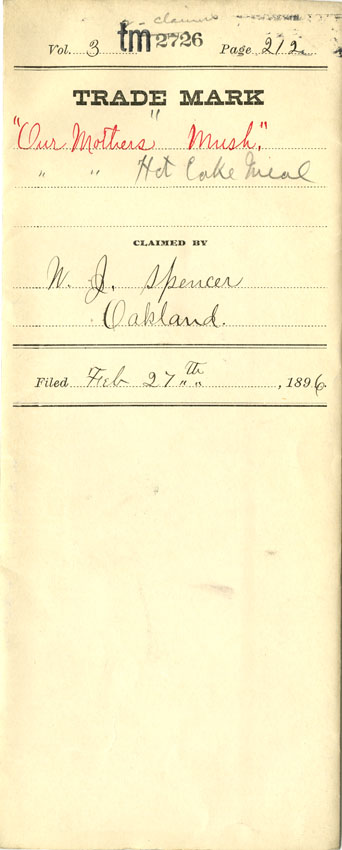 2 claims
Vol. 3 tm 2726 Page 212
TRADE MARK
"
"Our Mothers Mush."
" " Hot Cake Meal
CLAIMED BY
W. J. Spencer
Oakland.
Filed Feb 27th " " , 1896.